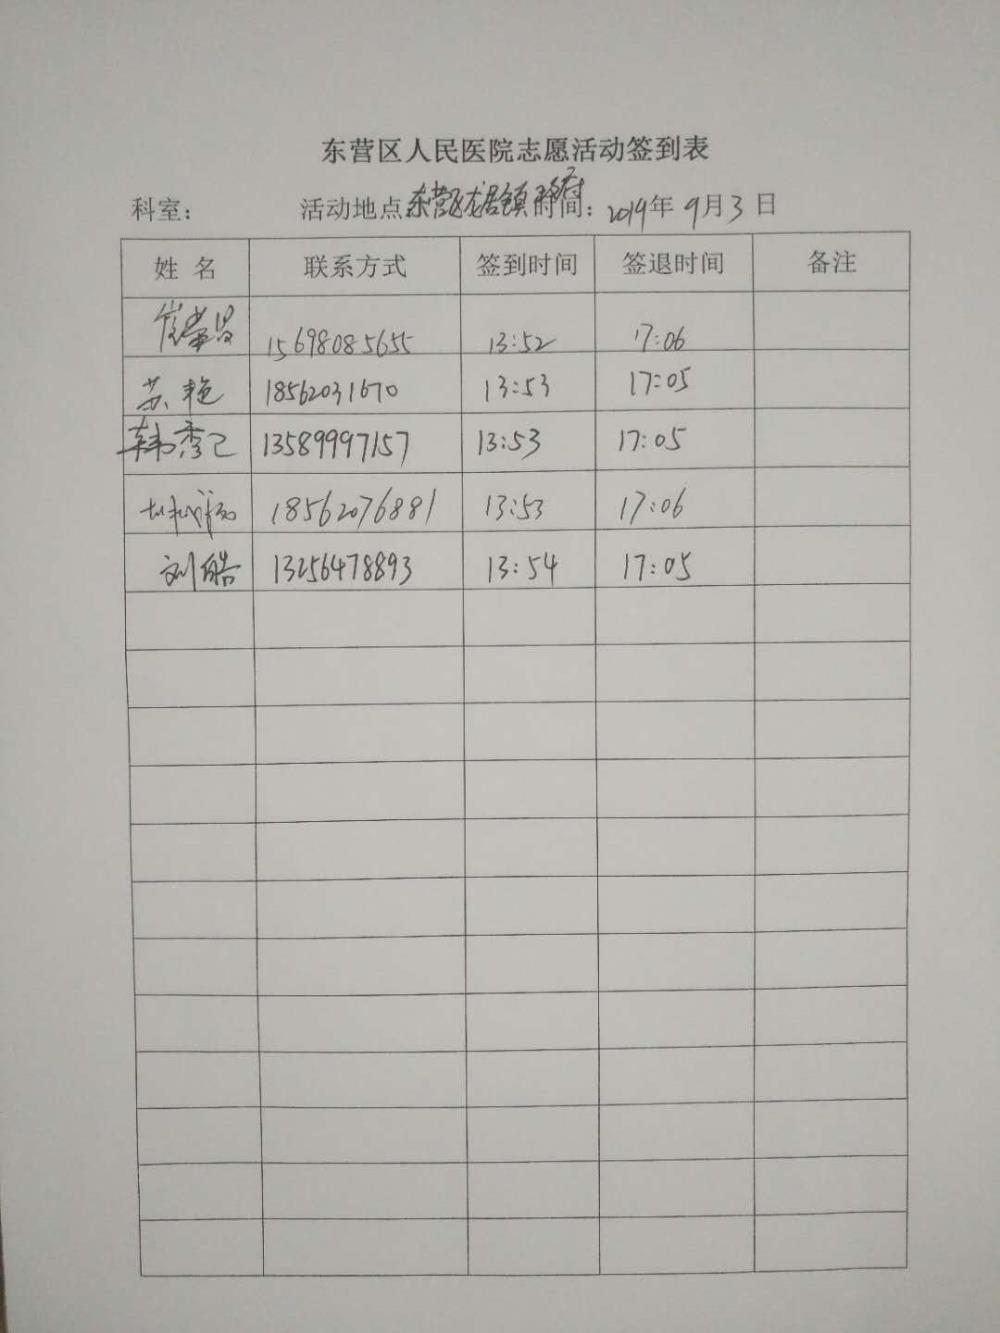 东营区人民医院志愿活动签到表
科室： 活动地点东营区龙居镇 时间：2019年9月3日
姓名 联系方式 签到时间 签退时间 备注
15698085655 13:52 17:06
苏艳 18562031670 13:53 17:05
韩秀己 13589997157 13:53 17:05
18562076881 13:53 17:06
刘皓 13256478893 13:54 17:05